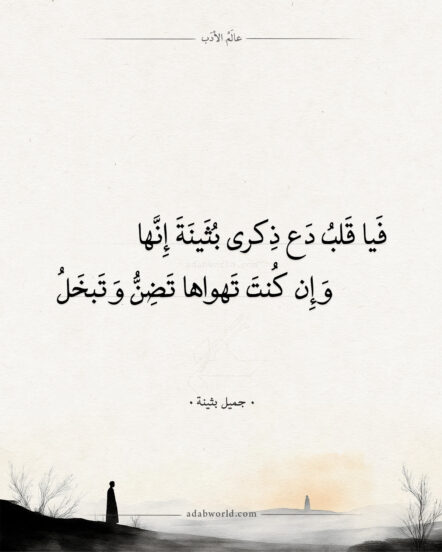 عالَمُ الأدَب
فَيا قَلبُ دَع ذِكرى بُثَينَةَ إِنَّها
وَإِن كُنتَ تَهواها تَضِنُّ وَتَبخَلُ
• جميل بثينة •
adabworld.com